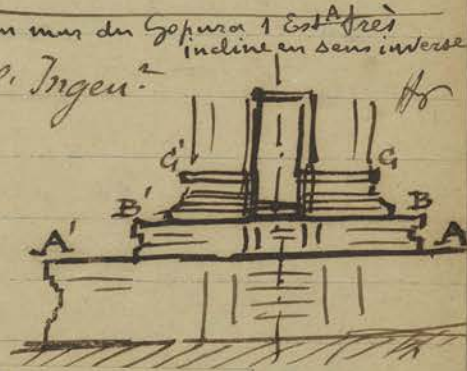 mur du Gopura 1 Est A très
incliné en sens inverse
Ingen?
G' G
B' B
A' A